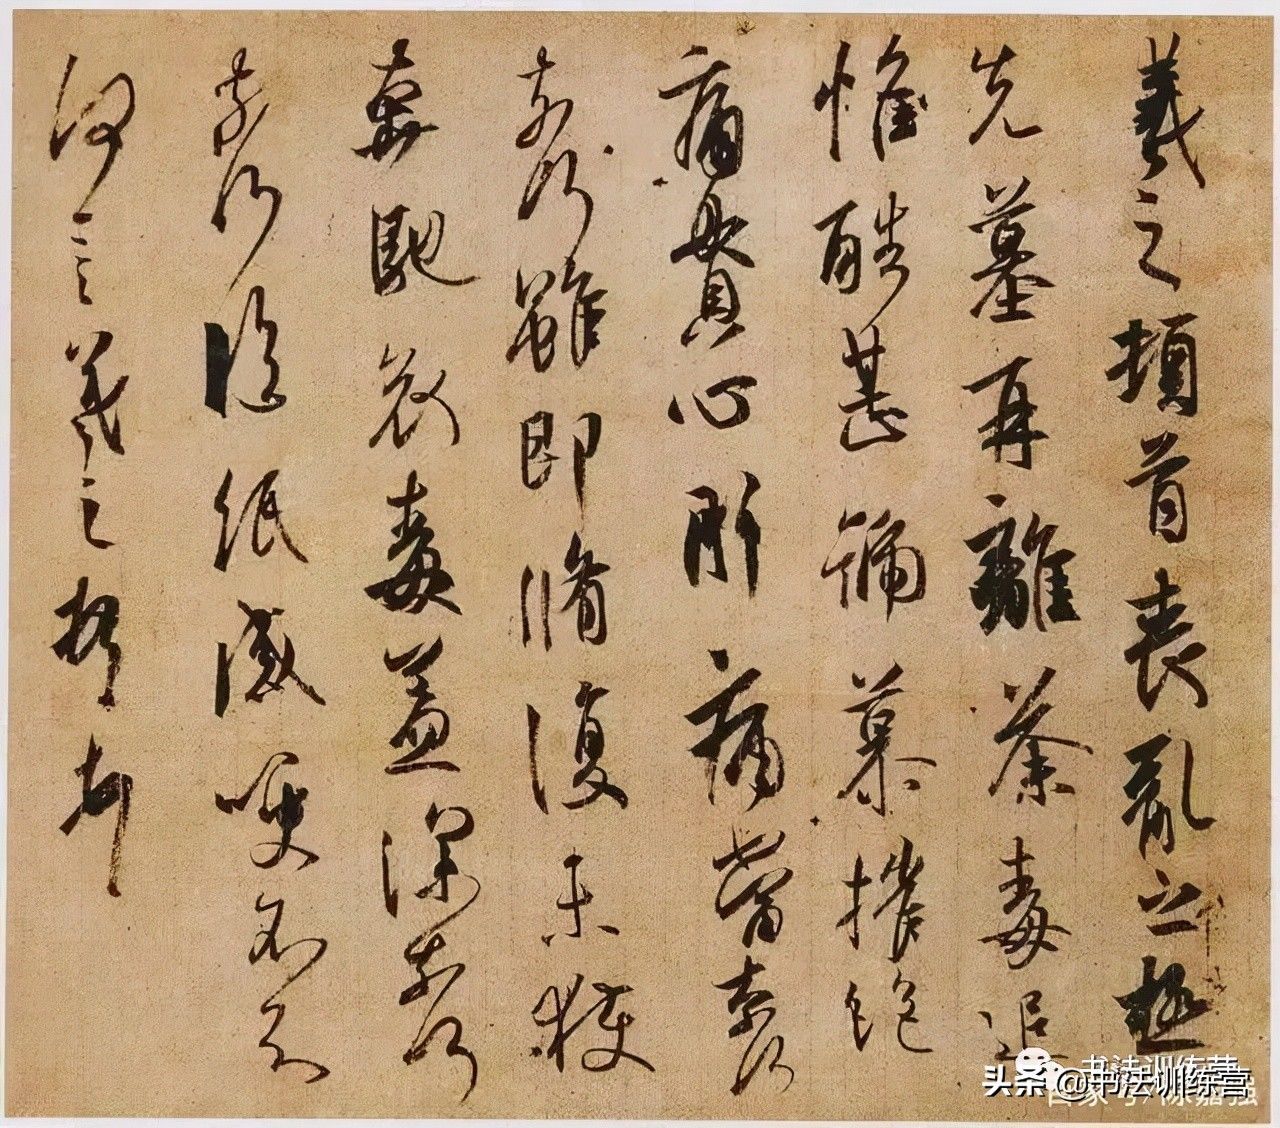 羲之頓首喪亂之極
先墓再離荼毒追
惟酷甚號慕摧絕
痛貫心肝痛當奈何
奈何雖即脩復未獲
奔馳哀毒益深奈何
奈何臨紙感哽不知
何言羲之頓首頓首
书法训练营
头条 @书法训练营
百家号/陈嘉强